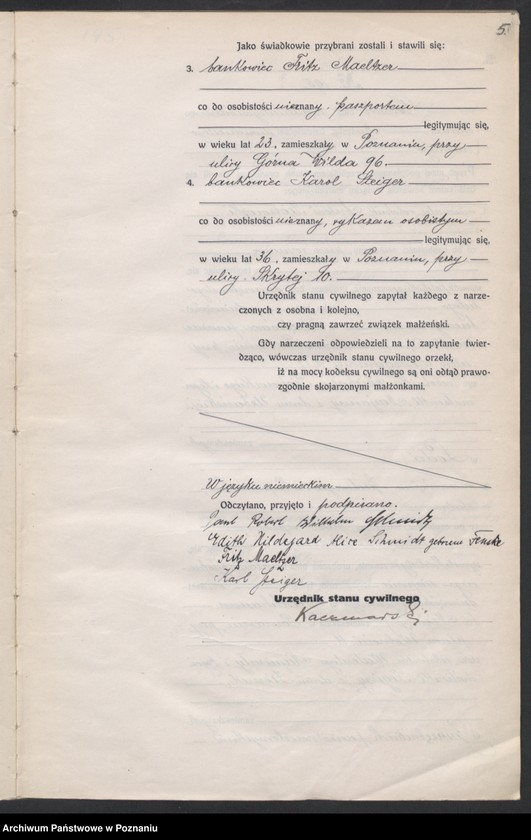 5.
Jako świadkowie przybrani zostali i stawili się:
3. bankowiec Fritz Maeltzer
co do osobistości nieznany. paszportem
legitymując się,
w wieku lat 23, zamieszkały w Poznaniu, przy
ulicy Górna Wilda 96.
4. bankowiec Karol Steiger
co do osobistości nieznany, wykazem osobistym
legitymując się,
w wieku lat 36, zamieszkały w Poznaniu, przy
ulicy Skrytej 10.
Urzędnik stanu cywilnego zapytał każdego z narze-
czonych z osobna i kolejno,
czy pragną zawrzeć związek małżeński.
Gdy narzeczeni odpowiedzieli na to zapytanie twier-
dząco, wówczas urzędnik stanu cywilnego orzekł,
iż na mocy kodeksu cywilnego są oni odtąd prawo-
zgodnie skojarzonymi małżonkami.
W języku niemieckim
Odczytano, przyjęto i podpisano.
Paul Robert Wilhelm Schmidt
Edith Hildegard Alice Schmidt geborene Fenske
Fritz Maeltzer
Karl Steiger
Urzędnik stanu cywilnego
Kaczmarski
Archiwum Państwowe w Poznaniu